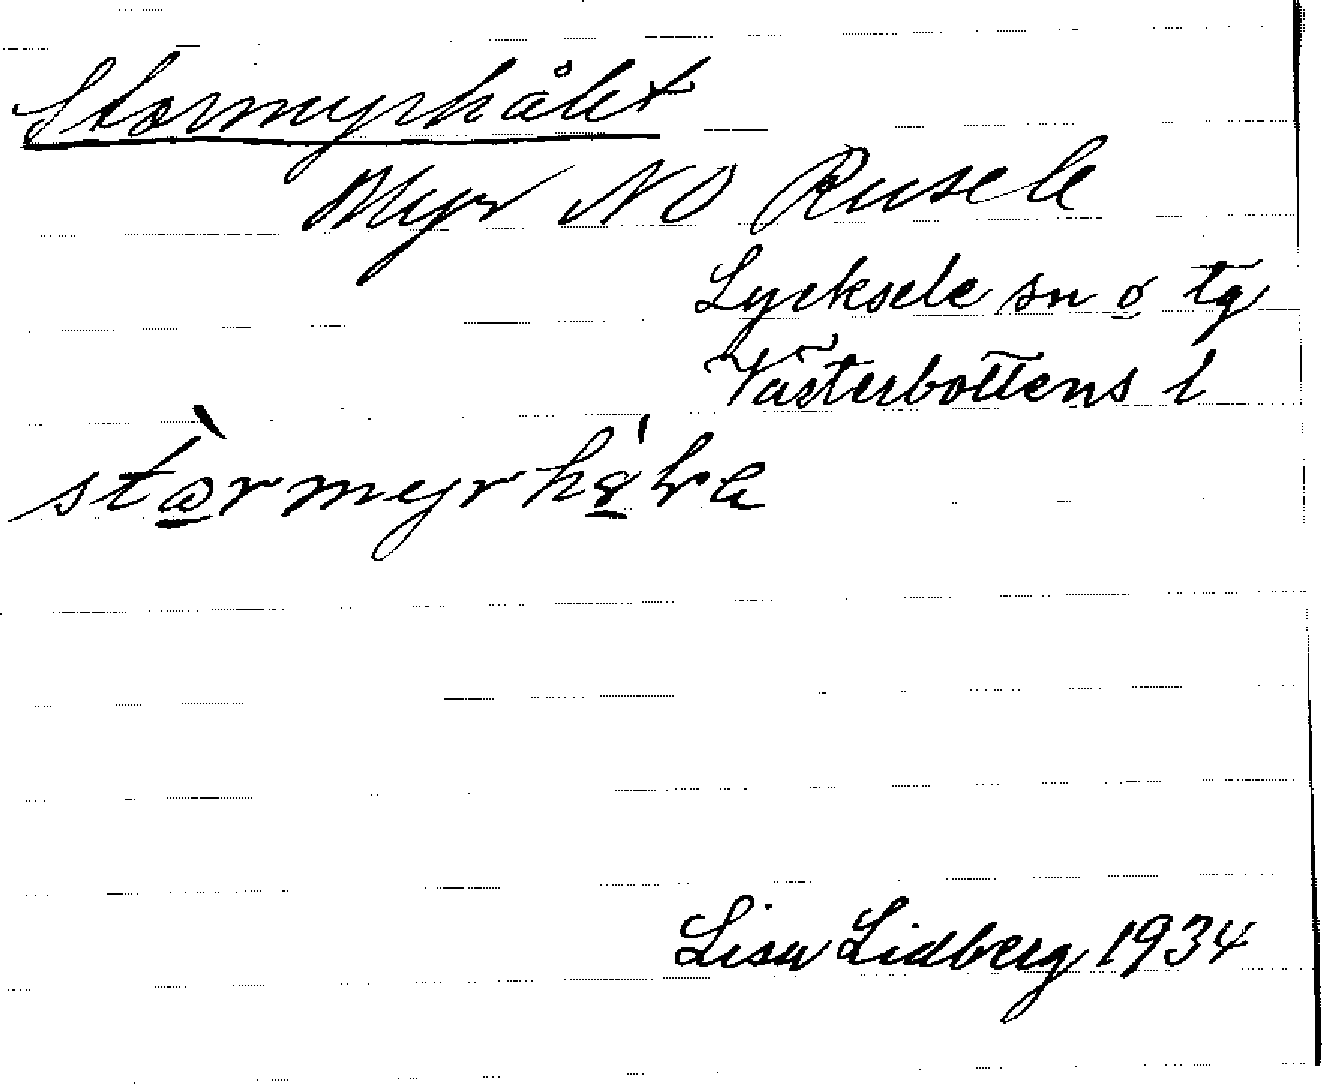 Stormyrhålet
Myr NO Rusele
Lycksele sn o tg
Västerbottens l
Lisa Lidberg 1934